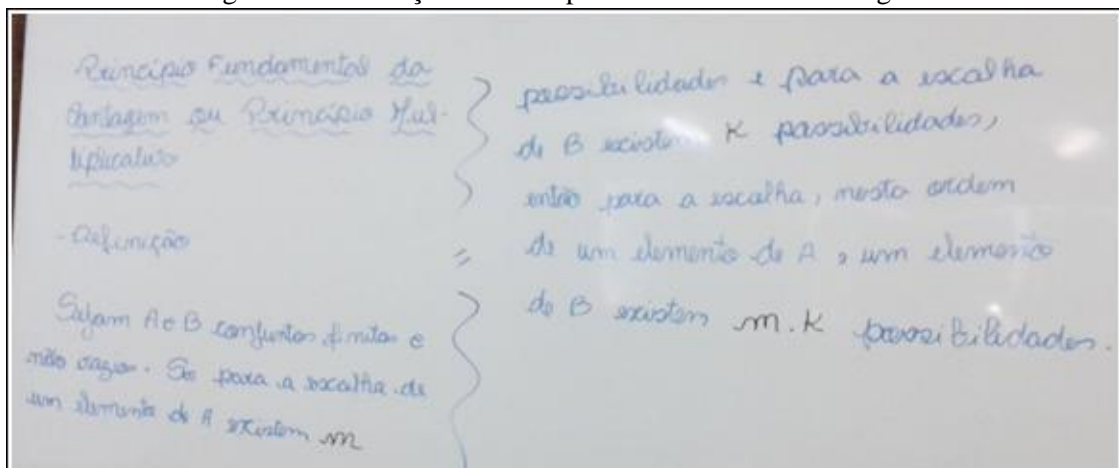 Princípio Fundamental da
Contagem ou Princípio Mul-
tiplicativo
- Definição
Sejam A e B conjuntos finitos e
não vazios. Se para a escolha de
um elemento de A existem m
possibilidades e para a escolha
de B existem K possibilidades,
então para a escolha, nesta ordem
de um elemento de A e um elemento
de B existem m.K possibilidades.